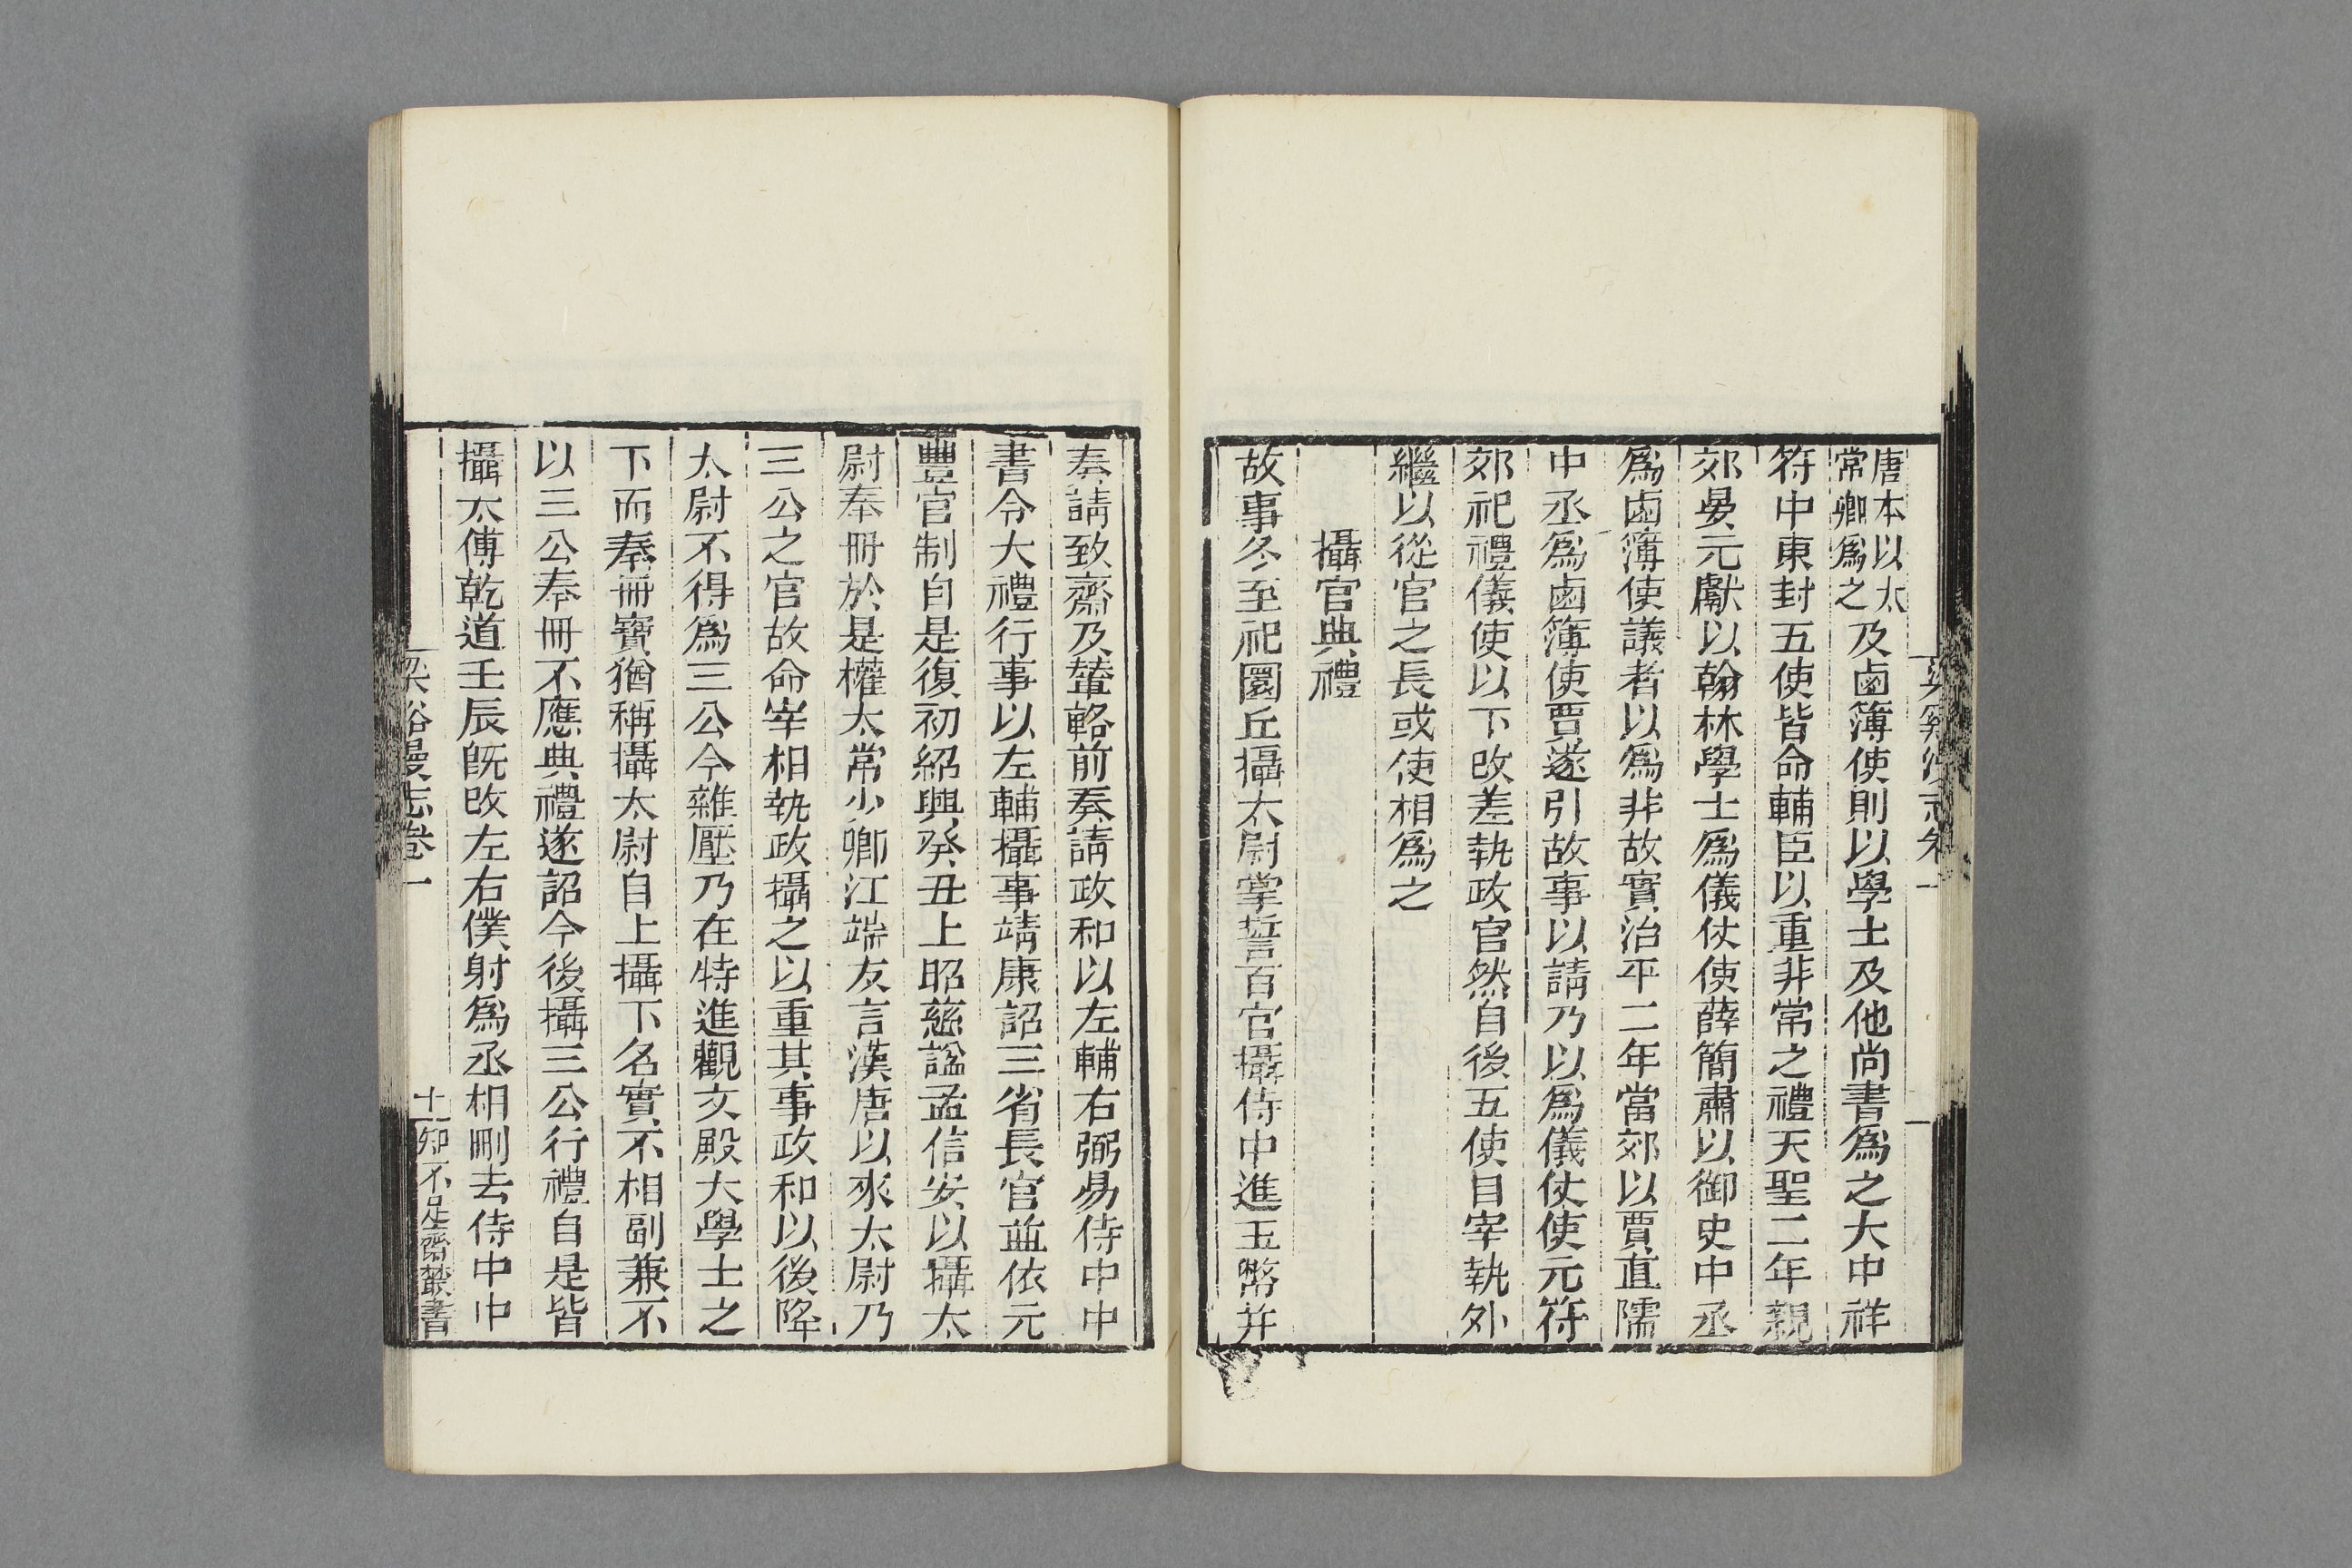 唐本以太
常卿爲之及鹵簿使則以學士及他尚書爲之大中祥
符中東封五使皆命輔臣以重非常之禮天聖二年親
郊晏元獻以翰林學士爲儀仗使薛簡肅以御史中丞
爲鹵簿使議者以爲非故實治平二年當郊以賈直孺
中丞爲鹵簿使賈遂引故事以請乃以爲儀仗使元符
郊祀禮儀使以下改差執政官然自後五使自宰執外
繼以從官之長或使相爲之
攝官典禮
故事冬至祀圜丘攝太尉掌誓百官攝侍中進玉幣并
奏請致齋及輦輅前奏請政和以左輔右弼易侍中中
書令大禮行事以左輔攝事靖康詔三省長官並依元
豐官制自是復初紹興癸丑上昭慈謚孟信安以攝太
尉奉冊於是權太常少卿江端友言漢唐以來太尉乃
三公之官故命宰相執政攝之以重其事政和以後降
太尉不得爲三公今雜壓乃在特進觀文殿大學士之
下而奉冊寶猶稱攝太尉自上攝下名實不相副兼不
以三公奉冊不應典禮遂詔今後攝三公行禮自是皆
攝太傅乾道壬辰旣改左右僕射爲丞相刪去侍中中
谿漫志卷一
十一
知不足齋叢書